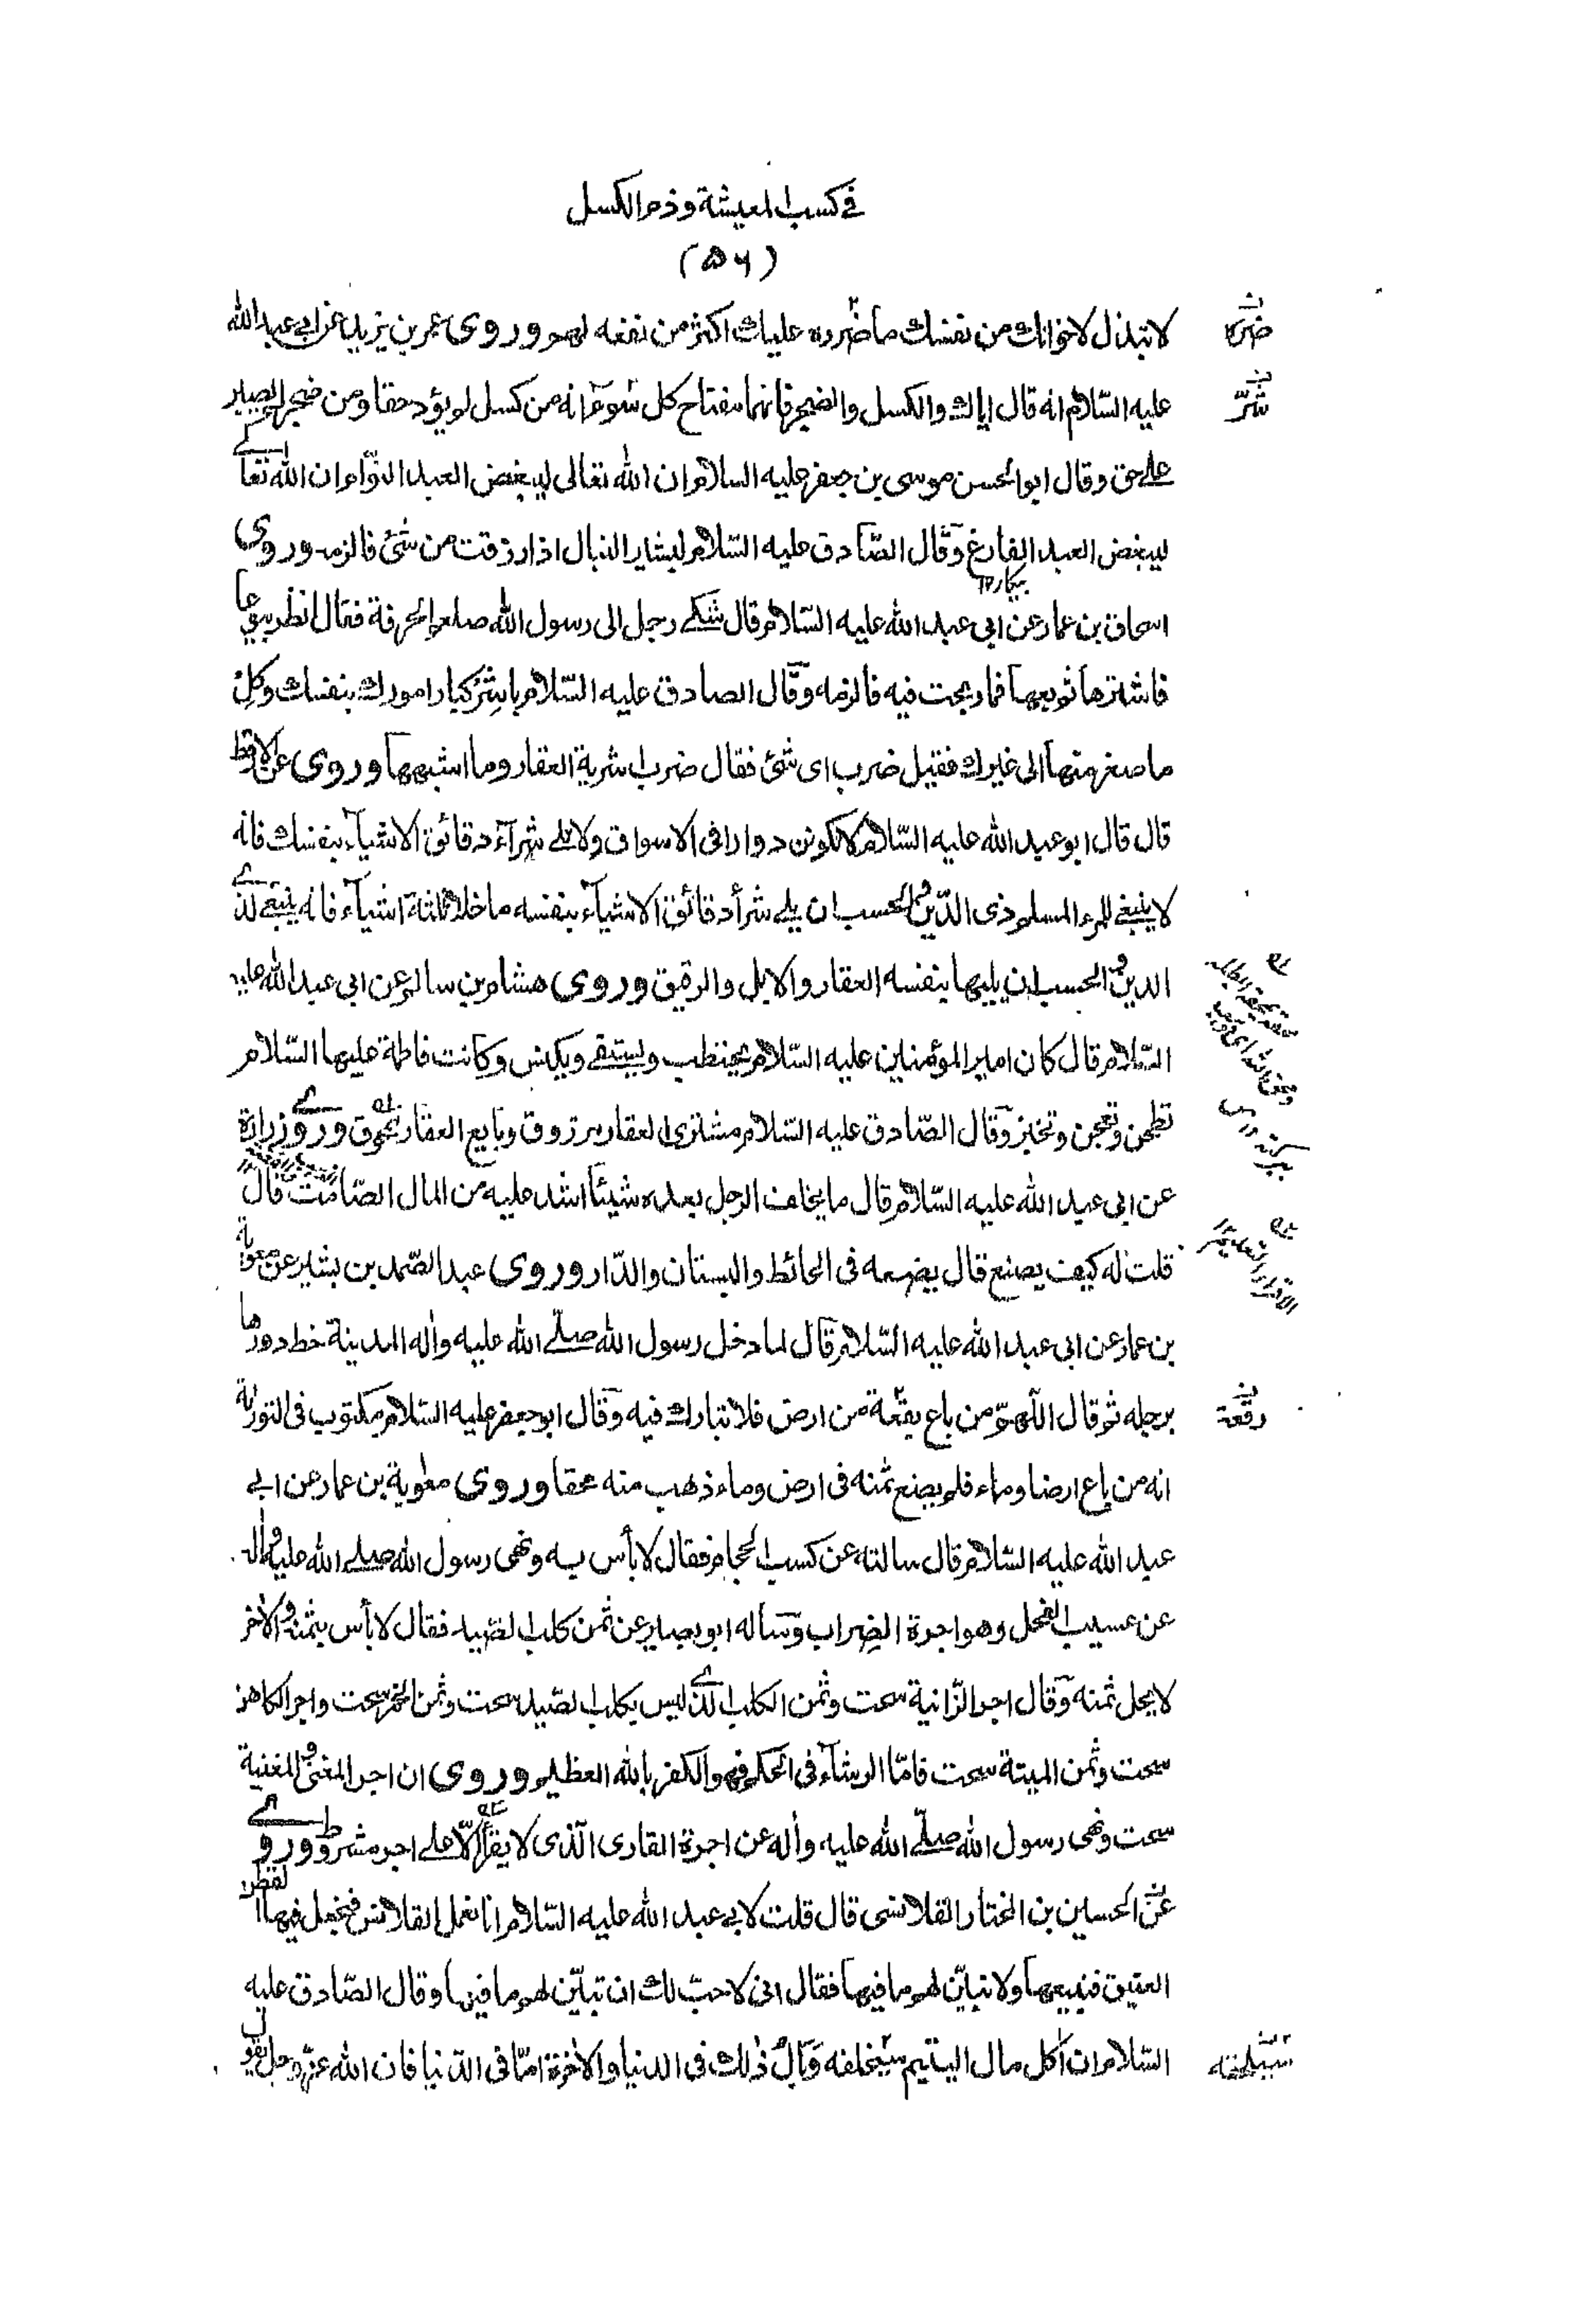 في كسب المعيشة وذم الكسل
(۵۶)
لا تبذل لاخوانك من نفسك ما ضرره عليك اكثر من نفعه لهم وروى عمر بن يزيد عن ابي عبد الله
ضره
عليه السّلام انه قال اياك والكسل والضجر فانهما مفتاح كل سوء انه من كسل لم يؤد حقا ومن ضجر لم يصبر
شرّ
على حق وقال ابو الحسن موسى بن جعفر عليه السلام ان الله تعالى ليبغض العبد النوّام ان الله تعالى
ليبغض العبد الفارغ وقال الصّادق عليه السّلام لبشير النبال اذا رزقت من شئ فالزمه وروى
بيكار ١٢
اسحاق بن عمار عن ابي عبد الله عليه السّلام قال شكى رجل الى رسول الله صلعم الحرفة فقال انظر بيوعا
فاشترها ثم بعها فما ربحت فيه فالزمه وقال الصادق عليه السّلام باشر كبار امورك بنفسك وكل
ما صغر منها الى غيرك فقيل ضرب اى شئ فقال ضرب اشرية العقار وما اشبهها وروى عن الارقط
قال قال ابو عبد الله عليه السّلام لا تكونن دوارا في الاسواق ولا تلى شرآء دقائق الاشيآء بنفسك فانه
لا ينبغى للمرء المسلم ذى الدّين والحسب ان يلى شرأ دقائق الاشيآء بنفسه ما خلا ثلثة اشيآء فانه ينبغى لذى
الدين والحسب ان يليها بنفسه العقار والابل والرقيق وروى هشام بن سالم عن ابي عبد الله عليه
السّلام قال كان امير المؤمنين عليه السّلام يحتطب ويستقى ويكنس وكانت فاطمة عليها السّلام
تطحن وتعجن وتخبز وقال الصّادق عليه السّلام مشترى العقار مرزوق وبايع العقار ممحوق وروى زرارة
عن ابي عبد الله عليه السّلام قال ما يخلف الرجل بعده شيئا اشد عليه من المال الصّامت قال
قلت له كيف يصنع قال يضعه في الحائط والبستان والدّار وروى عبد الصّمد بن بشير عن معوية
بن عمار عن ابي عبد الله عليه السّلام قال لما دخل رسول الله صلّى الله عليه وآله المدينة خط دورها
برجله ثم قال اللّهمّ من باع بقعة من ارض فلا تبارك فيه وقال ابو جعفر عليه السّلام مكتوب في التورية
رقعة
انه من باع ارضا وماء فلم يضع ثمنه في ارض وماء ذهب منه محقا وروى معوية بن عمار عن ابي
عبد الله عليه السّلام قال سالته عن كسب الحجام فقال لا بأس به ونهى رسول الله صلى الله عليه وآله
عن عسيب الفحل وهو اجرة الضراب وساله ابو بصير عن ثمن كلب الصّيد فقال لا بأس بثمنه والاخر
لا يحل ثمنه وقال اجر الزّانية سحت وثمن الكلب الّذى ليس بكلب الصّيد سحت وثمن الخمر سحت واجر الكاهن
سحت وثمن الميتة سحت فامّا الرشآء في الحكم فهو الكفر بالله العظيم وروى ان اجر المغنى والمغنية
سحت ونهى رسول الله صلّى الله عليه وآله عن اجرة القارى الّذى لا يقرأ الّا على اجر مشروط وروى
عن الحسين بن المختار القلانسى قال قلت لابي عبد الله عليه السّلام انا نعمل القلانس فنجعل فيها القطن
العتيق فنبيعها ولا نبيّن لهم ما فيها فقال انى لاحبّ لك ان تبيّن لهم ما فيها وقال الصّادق عليه
السّلام ان آكل مال اليتيم سيخلفه وبال ذلك في الدنيا والاخرة امّا في الدّنيا فان الله عزّ وجل يقول
سيلحقه